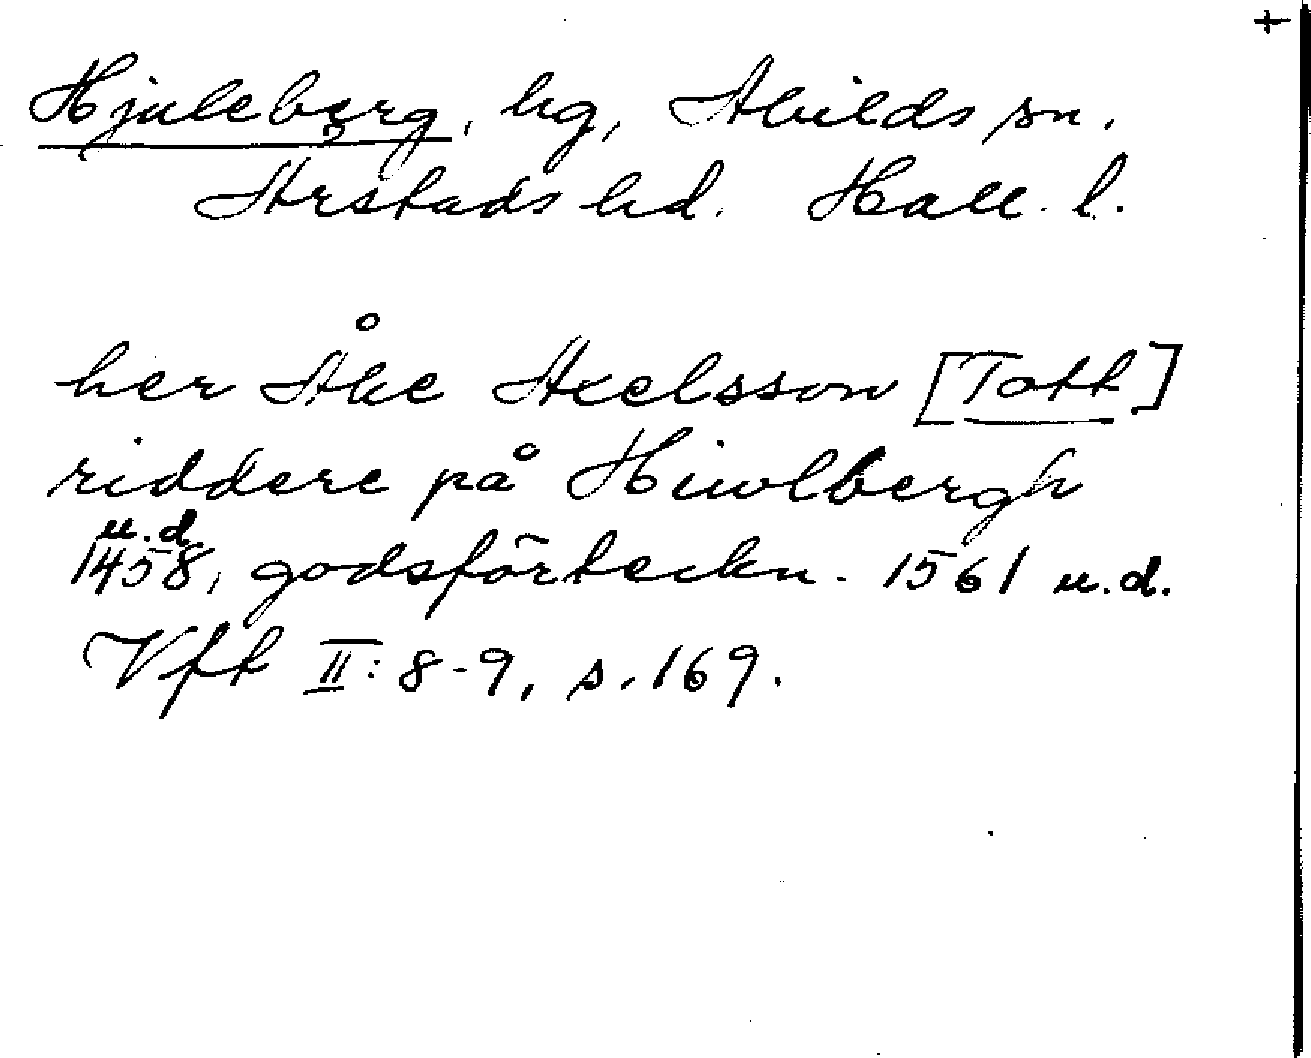 +
Hjuleberg, hg, Abilds sn.
Årstads hd. Hall. l.
her Åke Axelsson [Tott]
riddere på Hiwlbergh
u.d.
1458, godsförteckn. 1561 u.d.
Vft II: 8-9, s. 169.